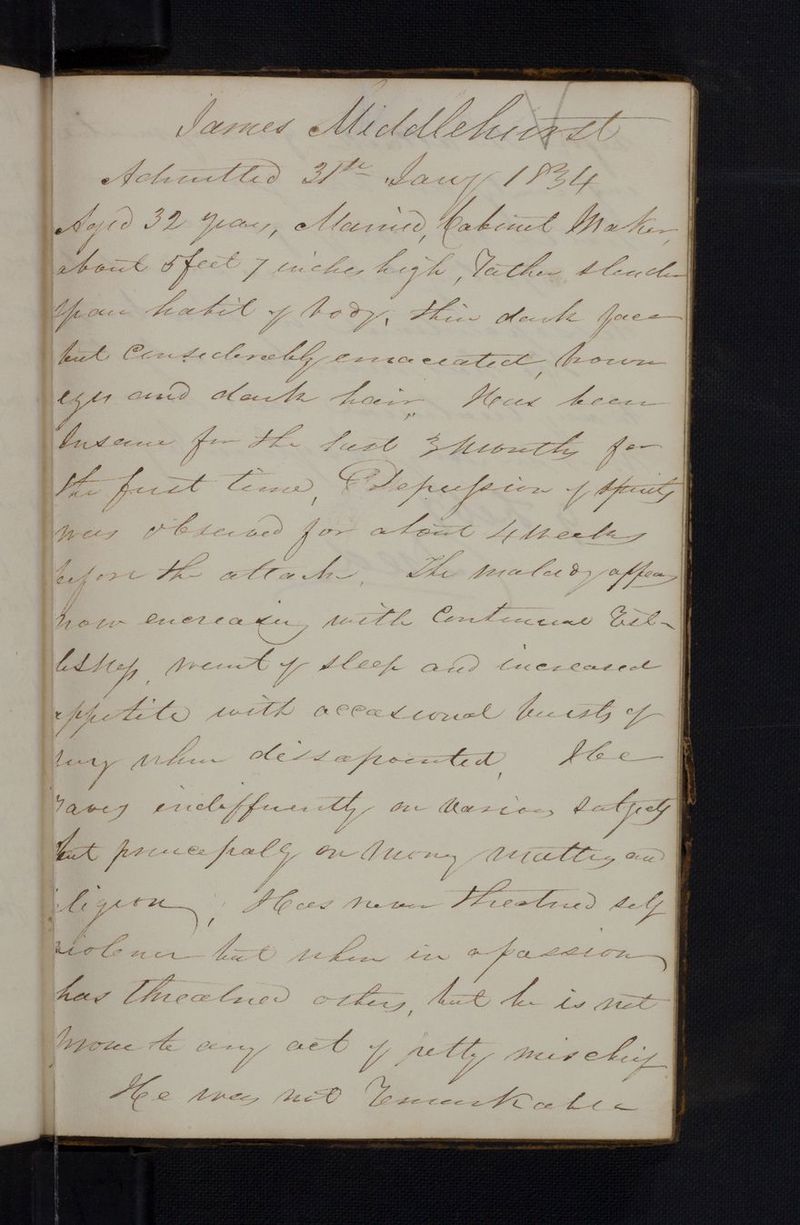 James Middlehurst
Admitted 31st Jany 1834
Aged 32 years, Married, Cabinet Maker,
about 5 feet 7 inches high, rather slender
spare habit of body, thin dark face
but considerably emaciated, brown
eyes and dark hair, Has been
Insane for the last 3 Months for
the first time, Depression of spirits
was observed for about 4 Weeks
before the attack, The malady appears
now encreasing with Continual
want of sleep and increased
appetite with occasional bursts of
when dissapointed, He
raves indiffuently on various Subjects
but principaly on Mony Matters and
religion, Has never threatned self
violence but when in a passion
has threatned others, but he is not
prone to any act of petty mischief
He was not remarkable